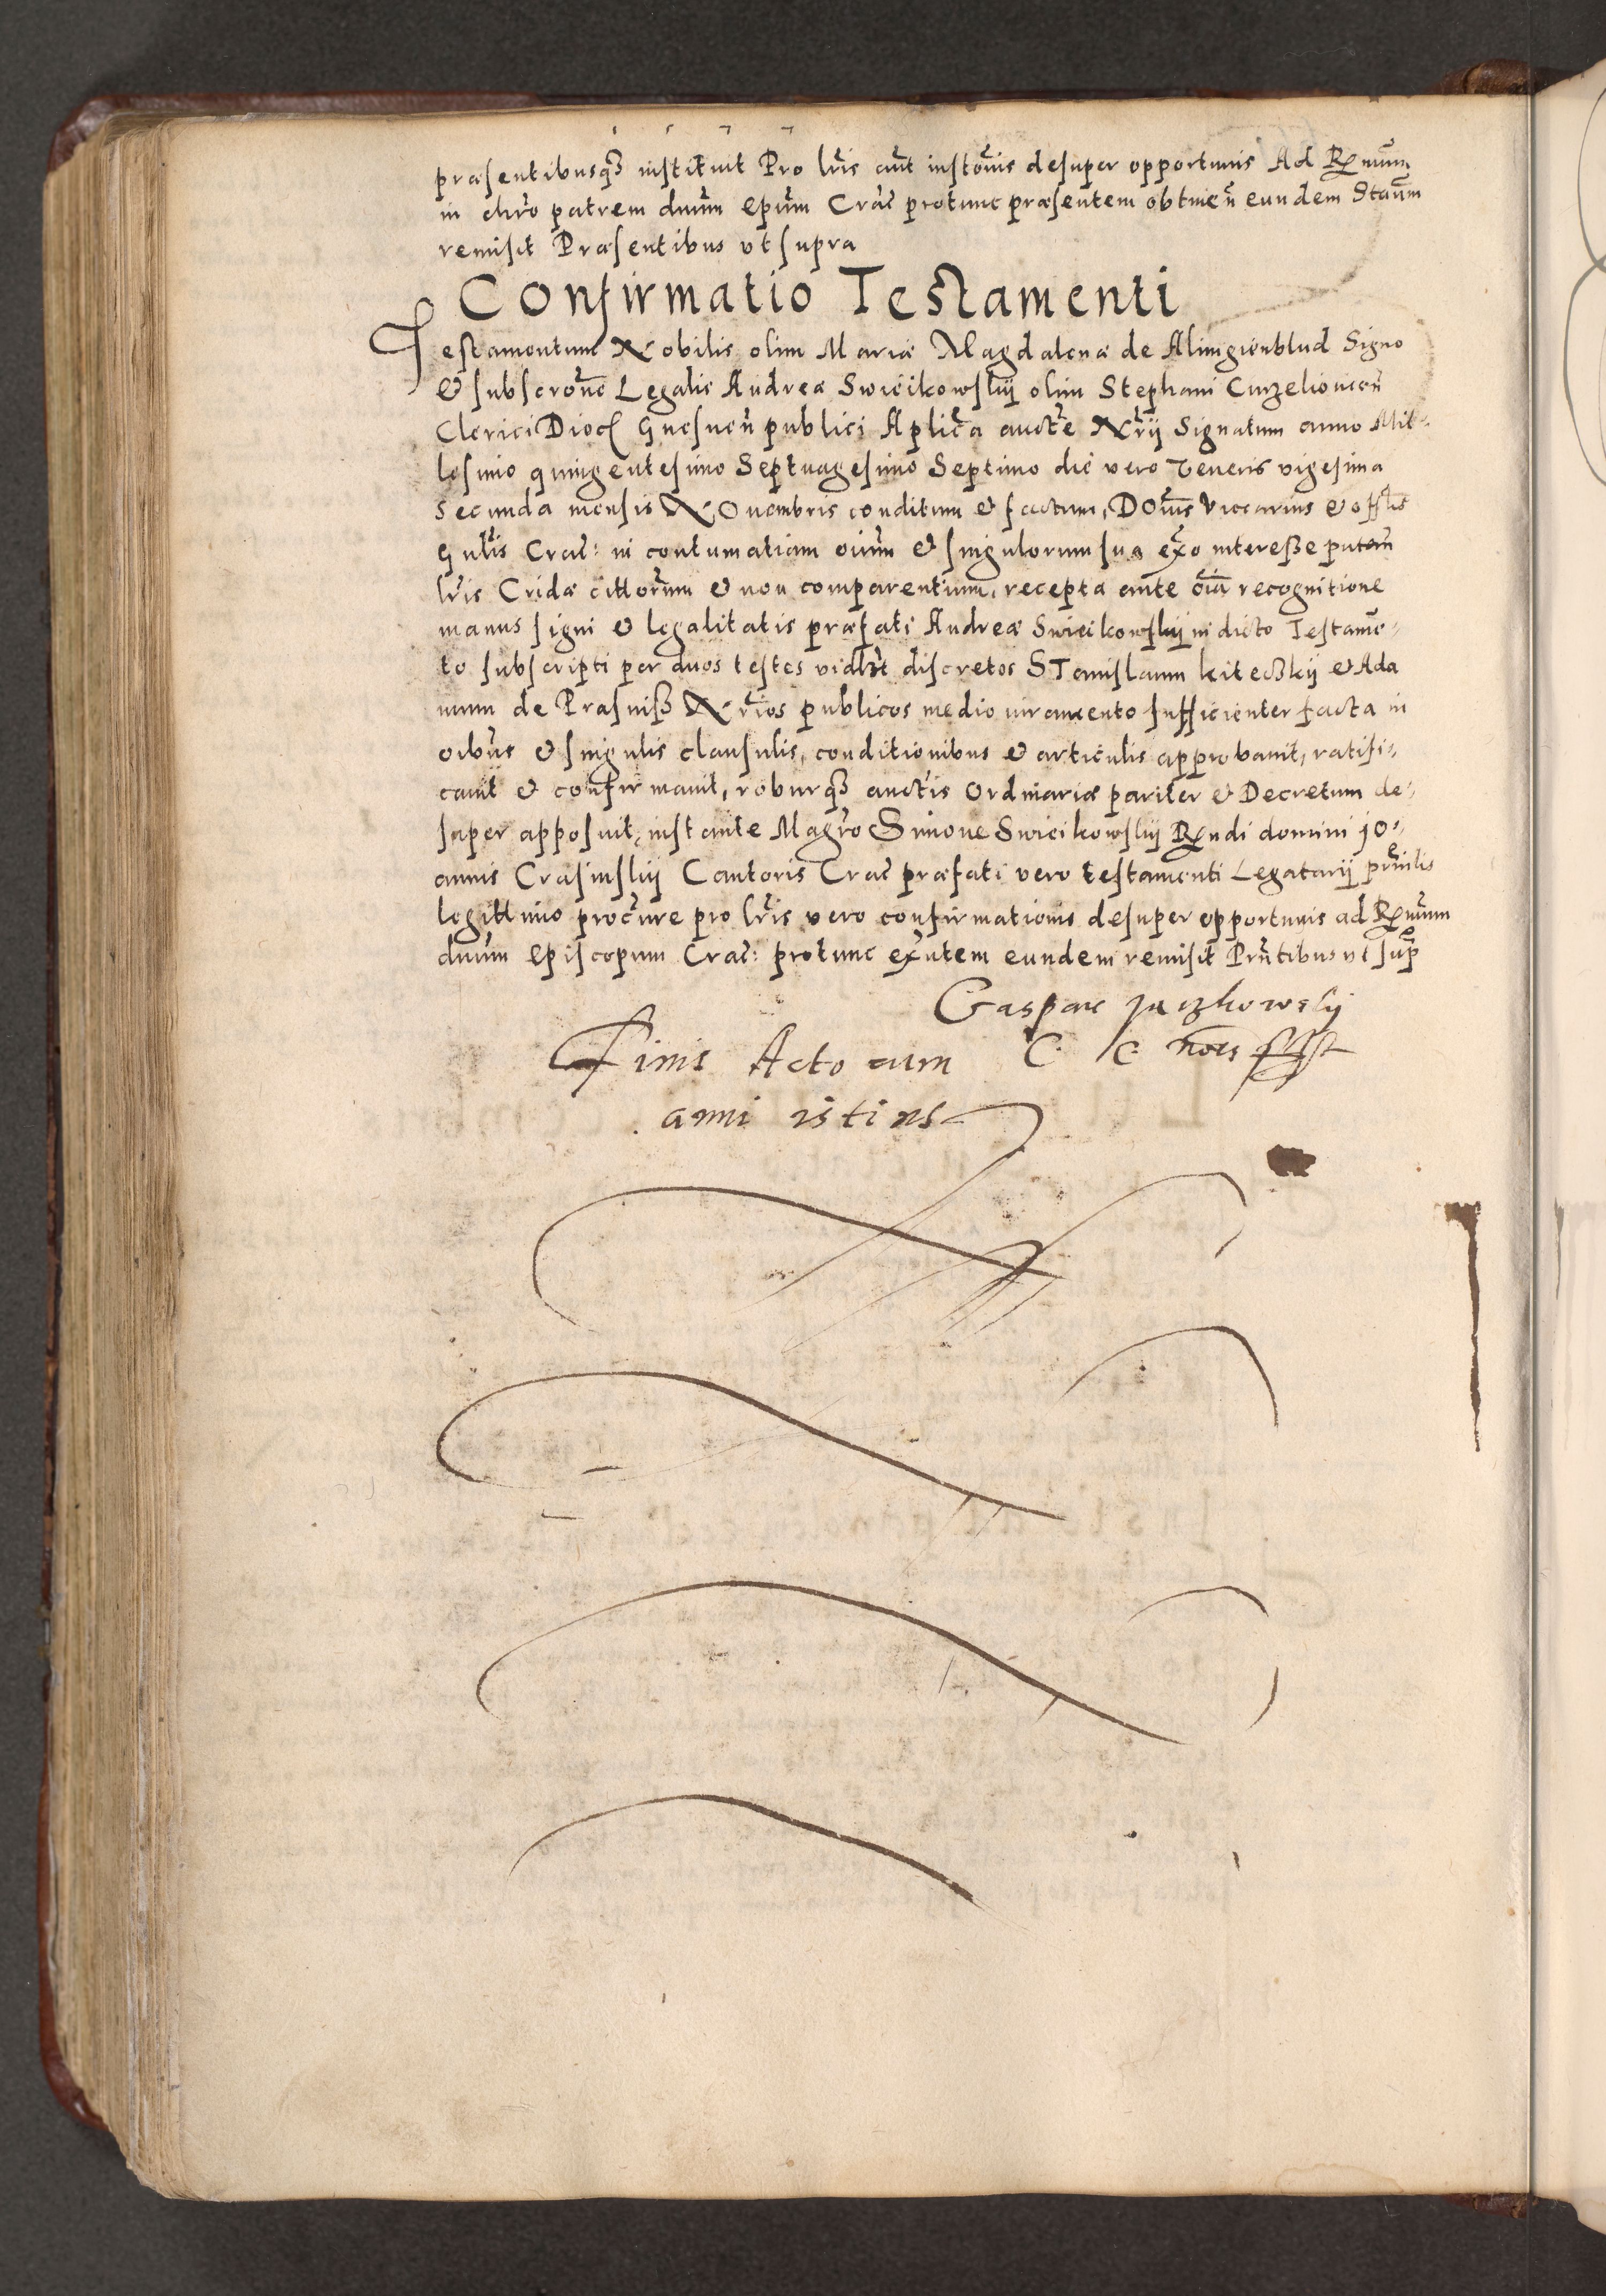 præsentibusq₃ instituit Pro lr̃is aũt instõnis desuper opportunis Ad Rx̃mum
in chr̃o patrem dnũm ep̃um Crac̃ protunc præsentem obtineñ eundem Staũm
remisit Præsentibus ut supra
Confirmatio Testamenti
Testamentum Nobilis olim Mariæ Magdalenæ de Signo
& subscrõne Legalis Andreæ Swiecikowskij olim Stephani Curzelioviceñ
Clerici Dioc Gnesneñ publici Aplic̃a auctẽ Nr̃ij Signatum anno Mil-
lesimo quingentesimo Septuagesimo Septimo die vero Veneris vigesima
secunda mensis Novembris conditum & factum, Dom̃s Vicarius & offlis̃
Gnlis̃ Crac̃: in contumatiam oium̃ & singulorum sua ex̃o interesse putañ
lr̃is Cridæ cittorum̃ & non comparentium, recepta ante oiã recognitione
manus signi & legalitatis præfati Andreæ Swiecikowskij in dicto Testamẽ-
to subscripti per duos testes vidlꝫt discretos STanislaum kiteczkij & Ada
mum de Prasnisz Nr̃ios publicos medio iuramento sufficienter facta in
oibus̃ & singulis clausulis, conditionibus & articulis approbavit, ratifi-
cavit & confirmavit, roburq₃ auctĩs Ordinariæ pariter & Decretum de-
super apposuit, instante Magr̃o Simone Swiecikowskij Rx̃ndi domini jo-
annis Crasinskij Cantoris Crac̃ præfati vero testamenti Legatarij prin̄lis
legittimo procũre pro lr̃is vero confirmationis desuper opportunis ad Rx̃mum
dnũm Episcopum Crac̃: protunc ex̃ntem eundem remisit Prñtibus ut sup̃
Gaspar
Finis Actorum C. C. not̃s sst
anni istius